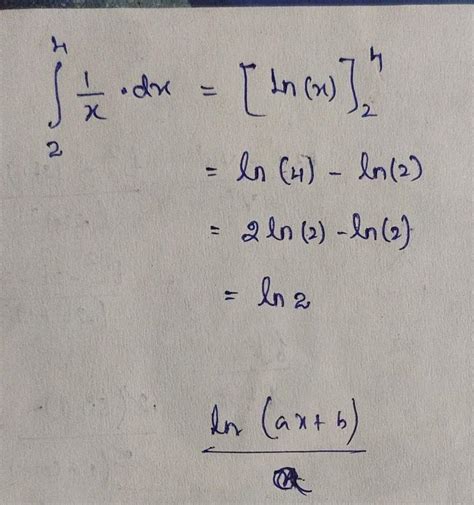 ∫₂⁴ 1/x · dx = [ln(x)]₂⁴
= ln(4) - ln(2)
= 2ln(2) - ln(2)
= ln 2
ln (ax+b)